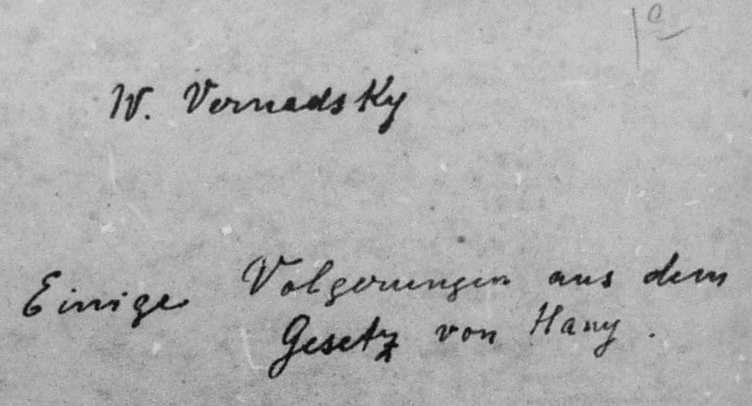 W. Vernadsky
Einige Volgerungen aus dem
Gesetz von Hauy.